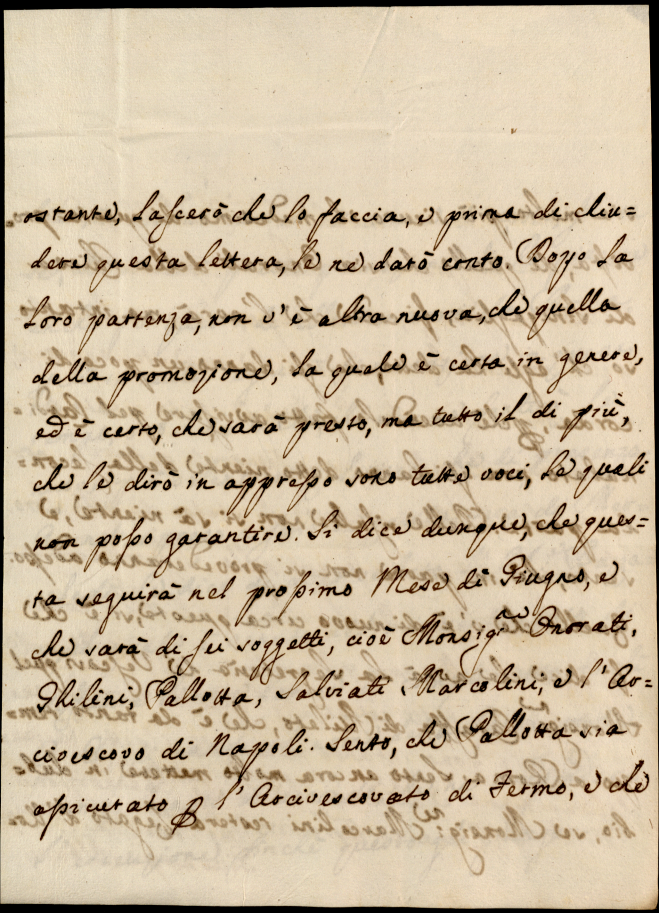 ostante, lascerò che lo faccia, e prima di chiu=
dere questa lettera, le ne darò conto. Dopo la
loro partenza, non v'è altra nuova, che quella
della promozione, la quale è certa in genere,
ed è certo, che sarà presto, ma tutto il di più,
che le dirò in appresso sono tutte voci, le quali
non posso garantire. Si dice dunque, che ques=
ta seguirà nel prossimo Mese di Giugno, e
che sarà di sei soggetti, cioè Monsig.ri Onorati,
Ghilini, Pallotta, Salviati Marcolini, e l'Ar=
civescovo di Napoli. Sento, che Pallotta sia
assicurato l'Arcivescovato di Fermo, e che